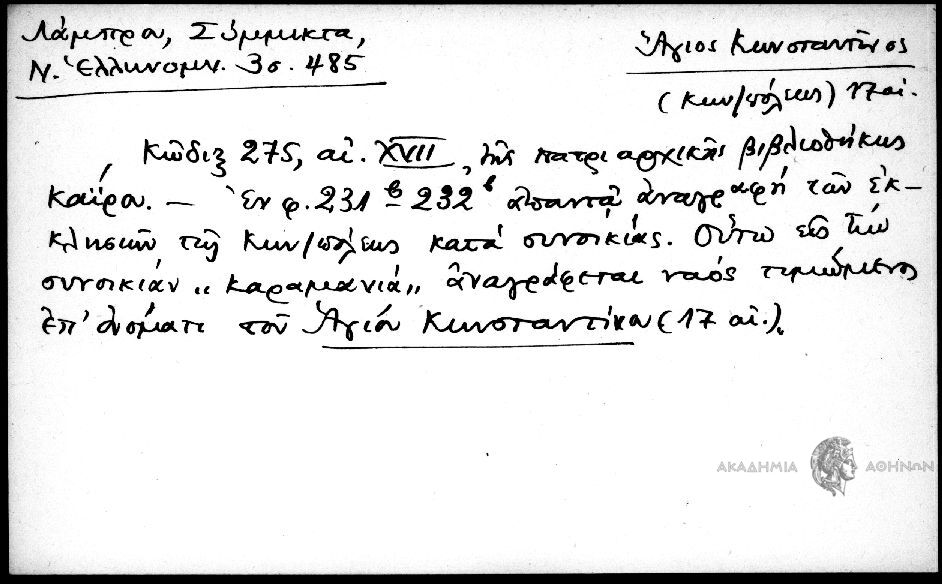 Λάμπρου, Σύμμικτα,
Ν. Ἑλληνομν. 3 σ. 485
Ἅγιος Κωνσταντῖνος
(Κων/πόλεως) 17 αἰ.
Κῶδιξ 275, αἰ. XVII, τῆς πατριαρχικῆς βιβλιοθήκης
Καΐρου. — Ἐν φ. 231β – 232β ἀπαντᾷ ἀναγραφή τῶν ἐκ-
κλησιῶν τῆς Κων/πόλεως κατά συνοικίας. Οὕτω εἰς τήν
συνοικίαν „Καραμανιά„ ἀναγράφεται ναός τιμώμενος
ἐπ' ὀνόματι τοῦ Ἁγίου Κωνσταντίνου (17 αἰ.).
ΑΚΑΔΗΜΙΑ ΑΘΗΝΩΝ